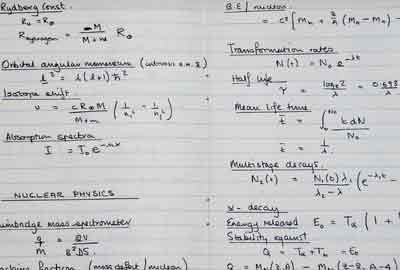 Rydberg Const.
R∞ = R∞
R hydrogen = M / M + m R∞
Orbital angular momentum (intrinsic
l² = l(l+1) ħ²
Isotope shift.
υ = cR∞M / M+m (1/n₁² - 1/n₂²)
Absorption spectra
I = I₀ e
NUCLEAR PHYSICS
Bainbridge mass spectrometer
q/M = 2V / B²DS.
fraction (mass defect/nucleon)
B.E / nucleon
= c² [Mn + Z/A (MH - Mn) -
Transformation rates
N(t) = N₀ e^-λt
Half life
τ = loge2 / λ = 0.693 / λ
Mean life time
t̄ = ∫₀^N₀ t dN / N₀
t̄ = 1/λ
Multistage decays.
N₂(t) = N₁(0) λ₁ / λ₂ - λ₁ (e^-λ₁t -
α - decay
Energy released E₀ = Tα (1 +
Stability against
Q = Tα + Tb = E₀
Q = - (Z-2, A-4)